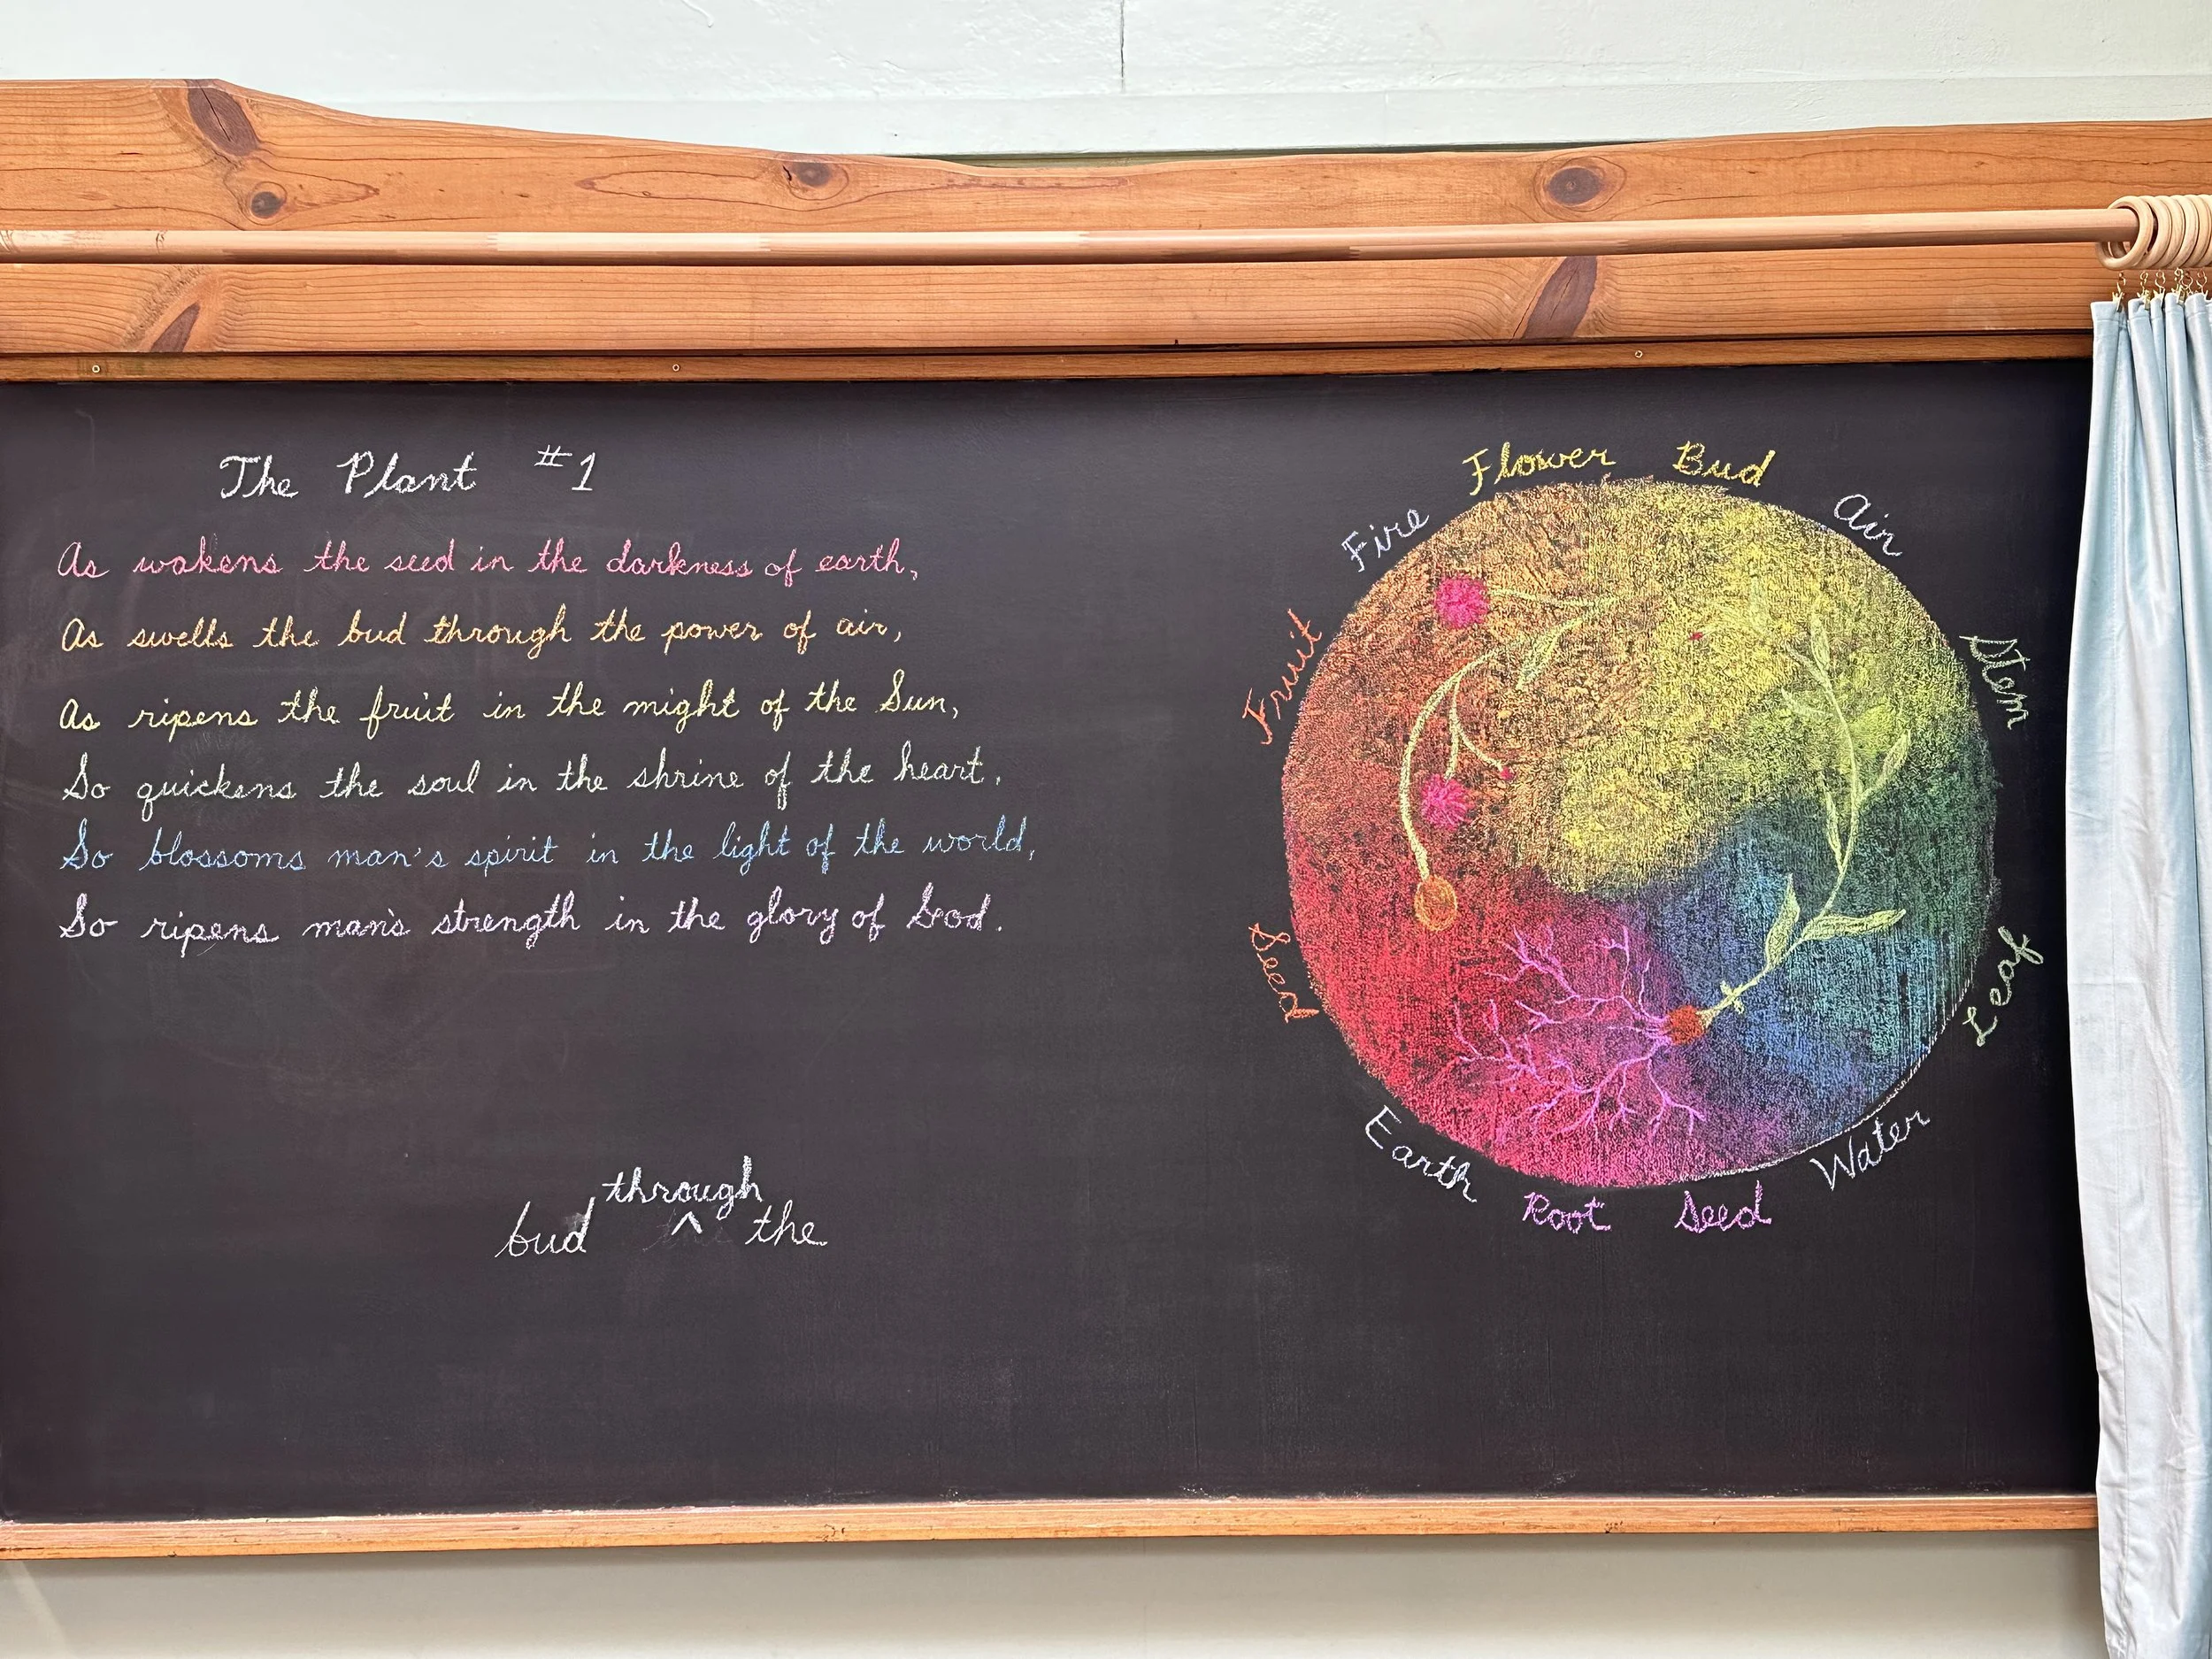 The Plant #1
As wakens the seed in the darkness of earth,
As swells the bud through the power of air,
As ripens the fruit in the might of the Sun,
So quickens the soul in the shrine of the heart,
So blossoms man's spirit in the light of the world,
So ripens man's strength in the glory of God.
through
bud ^ the
Flower Bud
Air
Stem
Leaf
Water
Seed
Root
Earth
Seed
Fruit
Fire